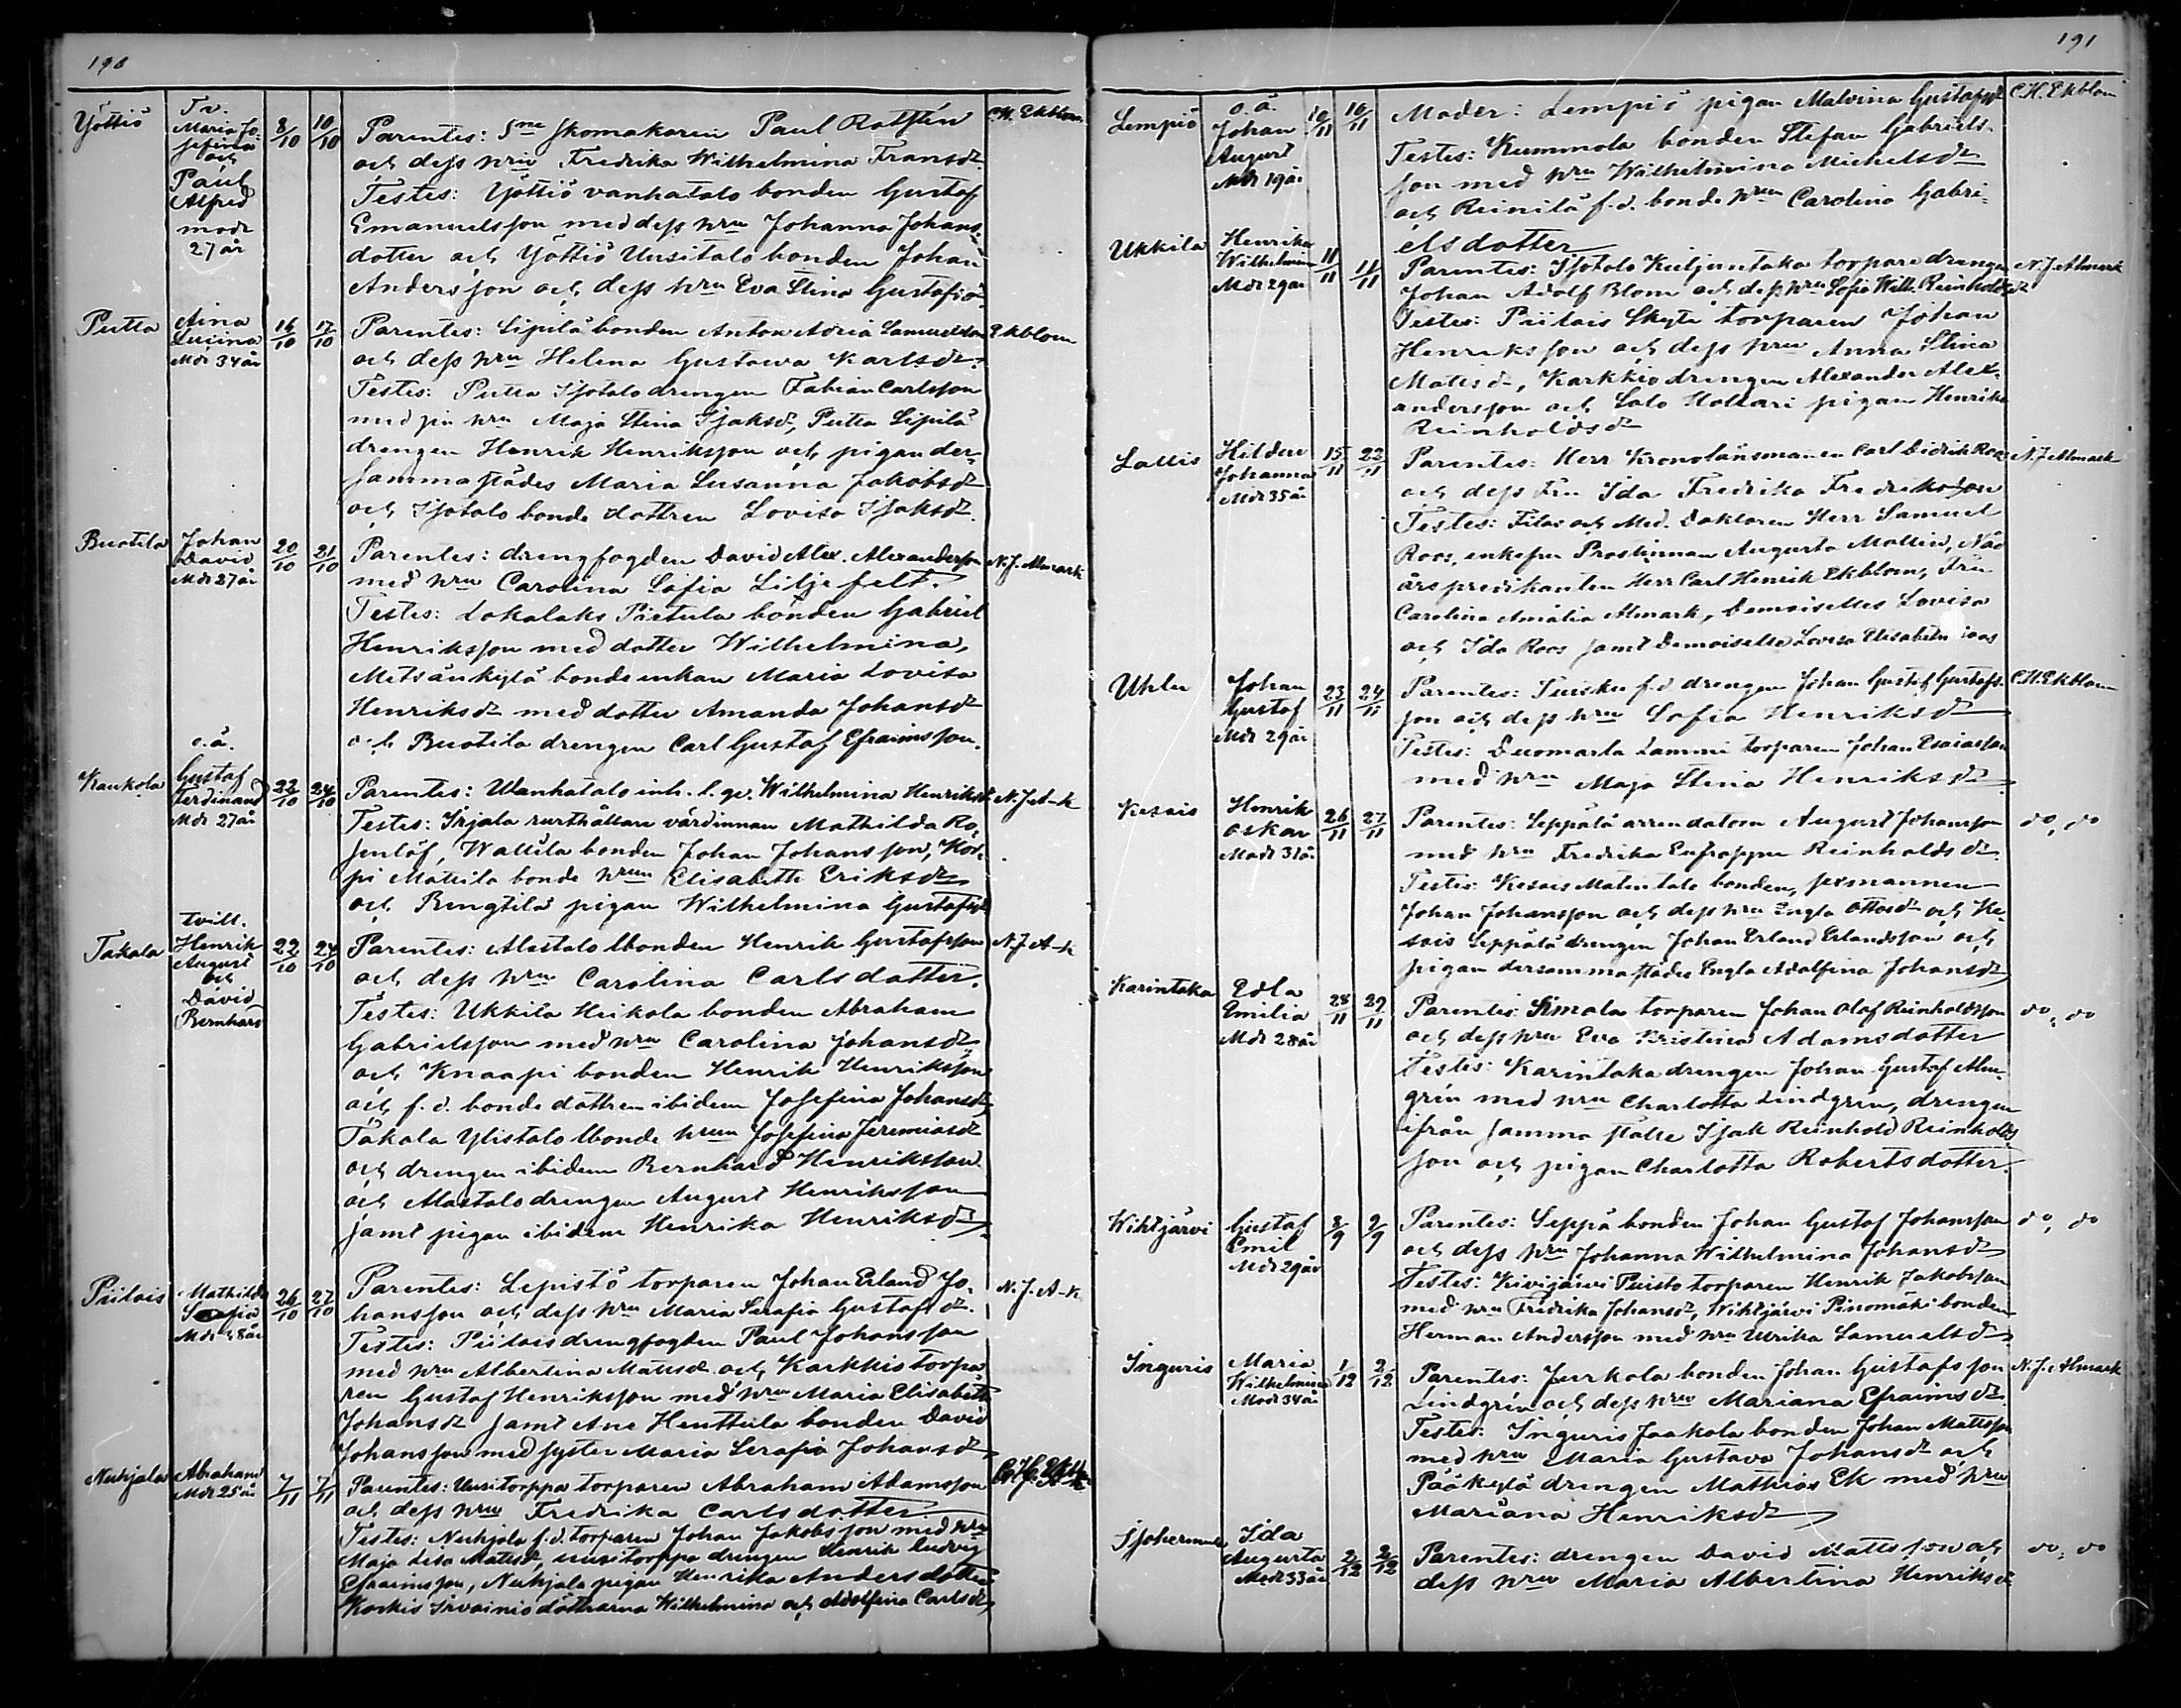 190
Yöttiö
Tv.
Maria Jo-
sefina
och
Paul
Alfred
modr
27 år
8/10 10/10
Parentes: Sne skomakaren Paul Rotsten
och dess hru Fredrika Wilhelmina Fransdr
Testes: Yöttiö vanhatalo bonden Gustaf
Emanuelsson med dess hru Johanna Johans-
dotter och Yöttiö Uusitalo bonden Johan
Andersson och dess hru Eva Stina Gustafsdr
C.H. Ekblom
Putta
Aina
Lucina
Mdr 34 år
16/10 17/10
Parentes: Sipilä bonden Anton Adria Samuelsson
och dess hru Helena Gustawa Karlsdr.
Testes: Putta Isotalo drengen Fabian Carlsson
med sin hru Maja Stina Isaksdr, Putta Sipilä
drengen Henrik Henriksson och pigan der-
sammastädes Maria Susanna Jakobsdr
och Isotalo bonde dottren Lovisa Isaksdr.
Ekblom
Buotila
Johan
David
Mdr 27 år
20/10 21/10
Parentes: drengfogden David Alex. Alexandersson
med hru Carolina Sofia Liljefelt.
Testes: Lokalaks Pirtula bonden Gabriel
Henriksson med dotter Wilhelmina,
Metsänkylä bonde enkan Maria Lovisa
Henriksdr med dotter Amanda Johansdr
och Buotila drengen Carl Gustaf Efraimsson.
N.J. Almark
Kaukola
o.ä.
Gustaf
Ferdinand
Mdr 27 år
22/10 24/10
Parentes: Wanhatalo inh. l. qv. Wilhelmina Henriksdr
Testes: Irjala rusthållare värdinnan Mathilda Ro-
senlöf, Wallila bonden Johan Johansson, Kor-
pi Mattila bonde hrun Elisabeth Eriksdr
och Rengtilä pigan Wilhelmina Gustafsdr
N.J. A-k
Takala
tvill.
Henrik
August
och
David
Bernhard
22/10 24/10
Parentes: Alastalo bonden Henrik Gustafsson
och dess hru Carolina Carlsdotter.
Testes: Ukkila Heikola bonden Abraham
Gabrielsson med hru Carolina Johansdr
och Knaapi bonden Henrik Henriksson
och f.d. bonde dottren ibidem Josefina Johansdr,
Takala Ylistalo bonde hrun Josefina Jeremiasdr
och drengen ibidem Bernhard Henriksson
och Alastalo drengen August Henriksson
samt pigan ibidem Henrika Henriksdr.
N.J. A-k
Piilais
Mathilda
Sofia
Mdr 28 år
26/10 27/10
Parentes: Lepistö torparen Johan Erland Jo-
hansson och dess hru Maria Serafia Gustafsdr.
Testes: Piilais drengfogden Paul Johansson
med hru Albertina Mattsdr och Karkkis torpa-
ren Gustaf Henriksson med hru Maria Elisabeth
Johansdr samt Ane Henttula bonden David
Johansson med syster Maria Serafia Johansdr
N.J. A-k
Nuhjala
Abraham
Mdr 25 år
7/11 7/11
Parentes: Uusitorppa torparen Abraham Adamsson
och dess hru Fredrika Carlsdotter
Testes: Nuhjala f.d. torparen Johan Jakobsson med hru
Maja Lisa Mattsdr, uusitorppa drengen Henrik Ludvig
Efraimsson, Nuhjala pigan Henrika Andersdotter
Karkis Irvainio döttrarna Wilhelmina och Adolfina Carlsdr,
191
Lempiö
o.ä.
Johan
August
Mdr 19 år
10/11 16/11
Moder: Lempiö pigan Malvina Gustafsdr
Testes: Kummola bonden Stefan Gabriels-
son med hru Wilhelmina Michelsdr
och Reinilä f.d. bonde hrun Carolina Gabri-
elsdotter
C.H. Ekblom
Ukkila
Henrika
Wilhelmina
Mdr 29 år
11/11 11/11
Parentes: Isotalo Kuljuntaka torpare drengen
Johan Adolf Blom och dess hru Sofia Wilh. Reinholdsdr
Testes: Piilais Skytte torparen Johan
Henriksson och dess hru Anna Stina
Matisdr, Karkkis drengen Alexander Alex-
andersson och Salo Holkari pigan Henrika
Reinholdsdr
N.J. Almark
Lallis
Hildur
Johanna
Mdr 35 år
15/11 22/11
Parentes: Herr Kronolänsmannen Carl Didrik Roos
och dess Fru Ida Fredrika Fredriksson
Testes: Filos. och Med. Doktoren Herr Samuel
Roos, enkefru Prostinnan Augusta Mollin, Nåd
årspredikanten Herr Carl Henrik Ekblom, Fru
Carolina Amalia Almark, Demoiselles Lovisa
och Ida Roos samt Demoiselle Lovisa Elisabeth Roos
N.J. Almark
Uhlu
Johan
Gustaf
Mdr 29 år
23/11 24/11
Parentes: Suisku f.d. drengen Johan Gustaf Gustafs-
son och dess hru Sofia Henriksdr
Testes: Duomarla Lammi torparen Johan Esaiasson
med hru Maja Stina Henriksdr
C.H. Ekblom
Kesais
Henrik
Oskar
Modr 31 år
26/11 27/11
Parentes: Seppälä arrendatorn August Johansson
med hru Fredrika Eufrosyne Reinholdsdr.
Testes: Kesais Matintalo bonden, sexmannen
Johan Johansson och dess hru Engla Ottosdr och Ke-
sais Seppälä drengen Johan Erland Erlandsson och
pigan dersammastädes Engla Adolfina Johansdr
do, do
Karintaka
Edla
Emilia
Mdr 28 år
28/11 29/11
Parentes: Simola torparen Johan Olof Reinholdsson
och dess hru Eva Kristina Adamsdotter
Testes: Karintaka drengen Johan Gustaf Alm-
grén med hru Charlotta Lindgrén, drengen
ifrån samma ställe Isak Reinhold Reinholds-
son och pigan Charlotta Robertsdotter.
do, do
Wihtjärvi
Gustaf
Emil
Mdr 29 år
8/9 9/9
Parentes: Seppä bonden Johan Gustaf Johansson
och dess hru Johanna Wilhelmina Johansdr
Testes: Kivijärvi Puisto torparen Henrik Jakobsson
med hru Fredrika Johansdr, Wihtjärvi Pinomäki bonden
Herman Andersson med hru Ulrika Samuelsdr
do, do
Inguris
Maria
Wilhelmina
Modr 34 år
1/12 2/12
Parentes: Jurkola bonden Johan Gustafsson
Lindgrén och dess hru Mariana Efraimsdr.
Testes: Inguris Jaakola bonden Johan Mattsson
med hru Maria Gustava Johansdr och
Pääkylä drengen Mathias Ek med hru
Mariana Henriksdr
N.J. Almark
Ida
Augusta
Modr 33 år
2/12 2/12
Parentes: drengen David Mattsson och
dess hru Maria Albertina Henriksdr
do, do